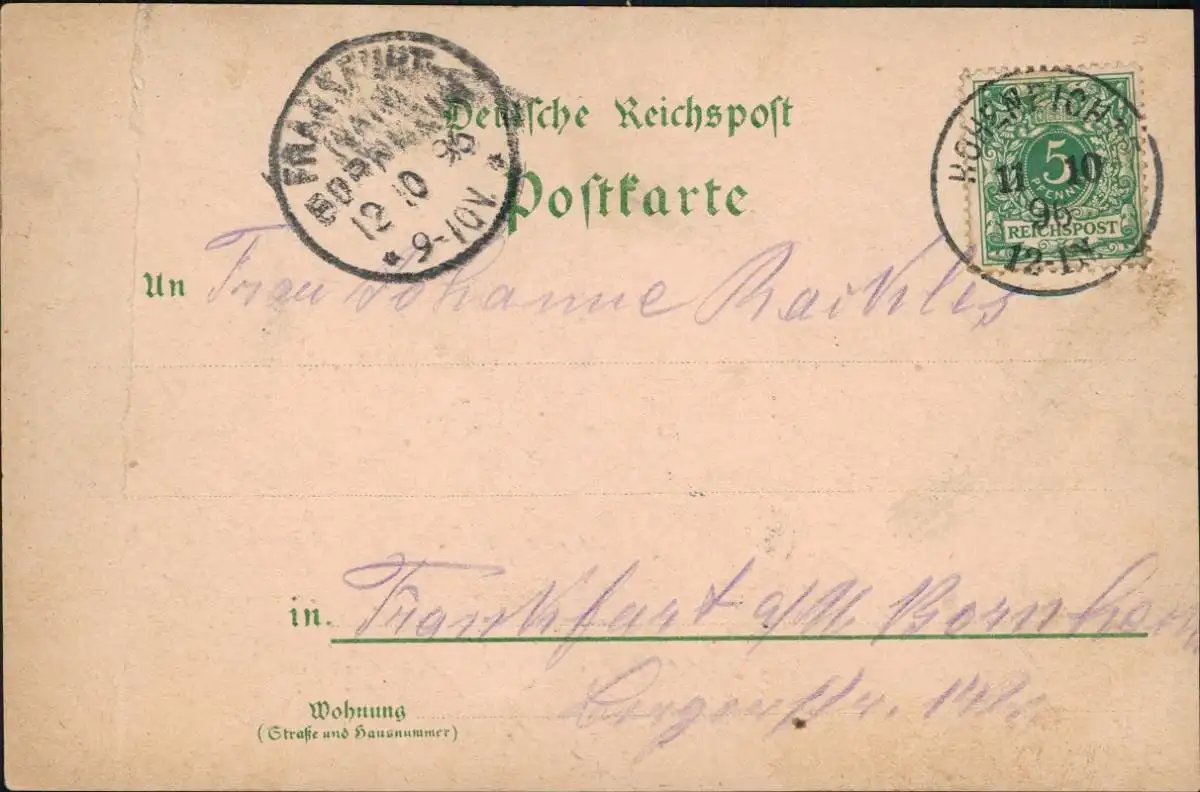 FRANKFURT
(MAIN)
BORNHEIM
12 10 96
* 9-10V. *
Deutsche Reichspost
Postkarte
5
PFENNIG
REICHSPOST
11 10
96
12-1N
An Frau Johanne
in. Frankfurt a/M Bornheim
Wohnung
(Straße und Hausnummer)